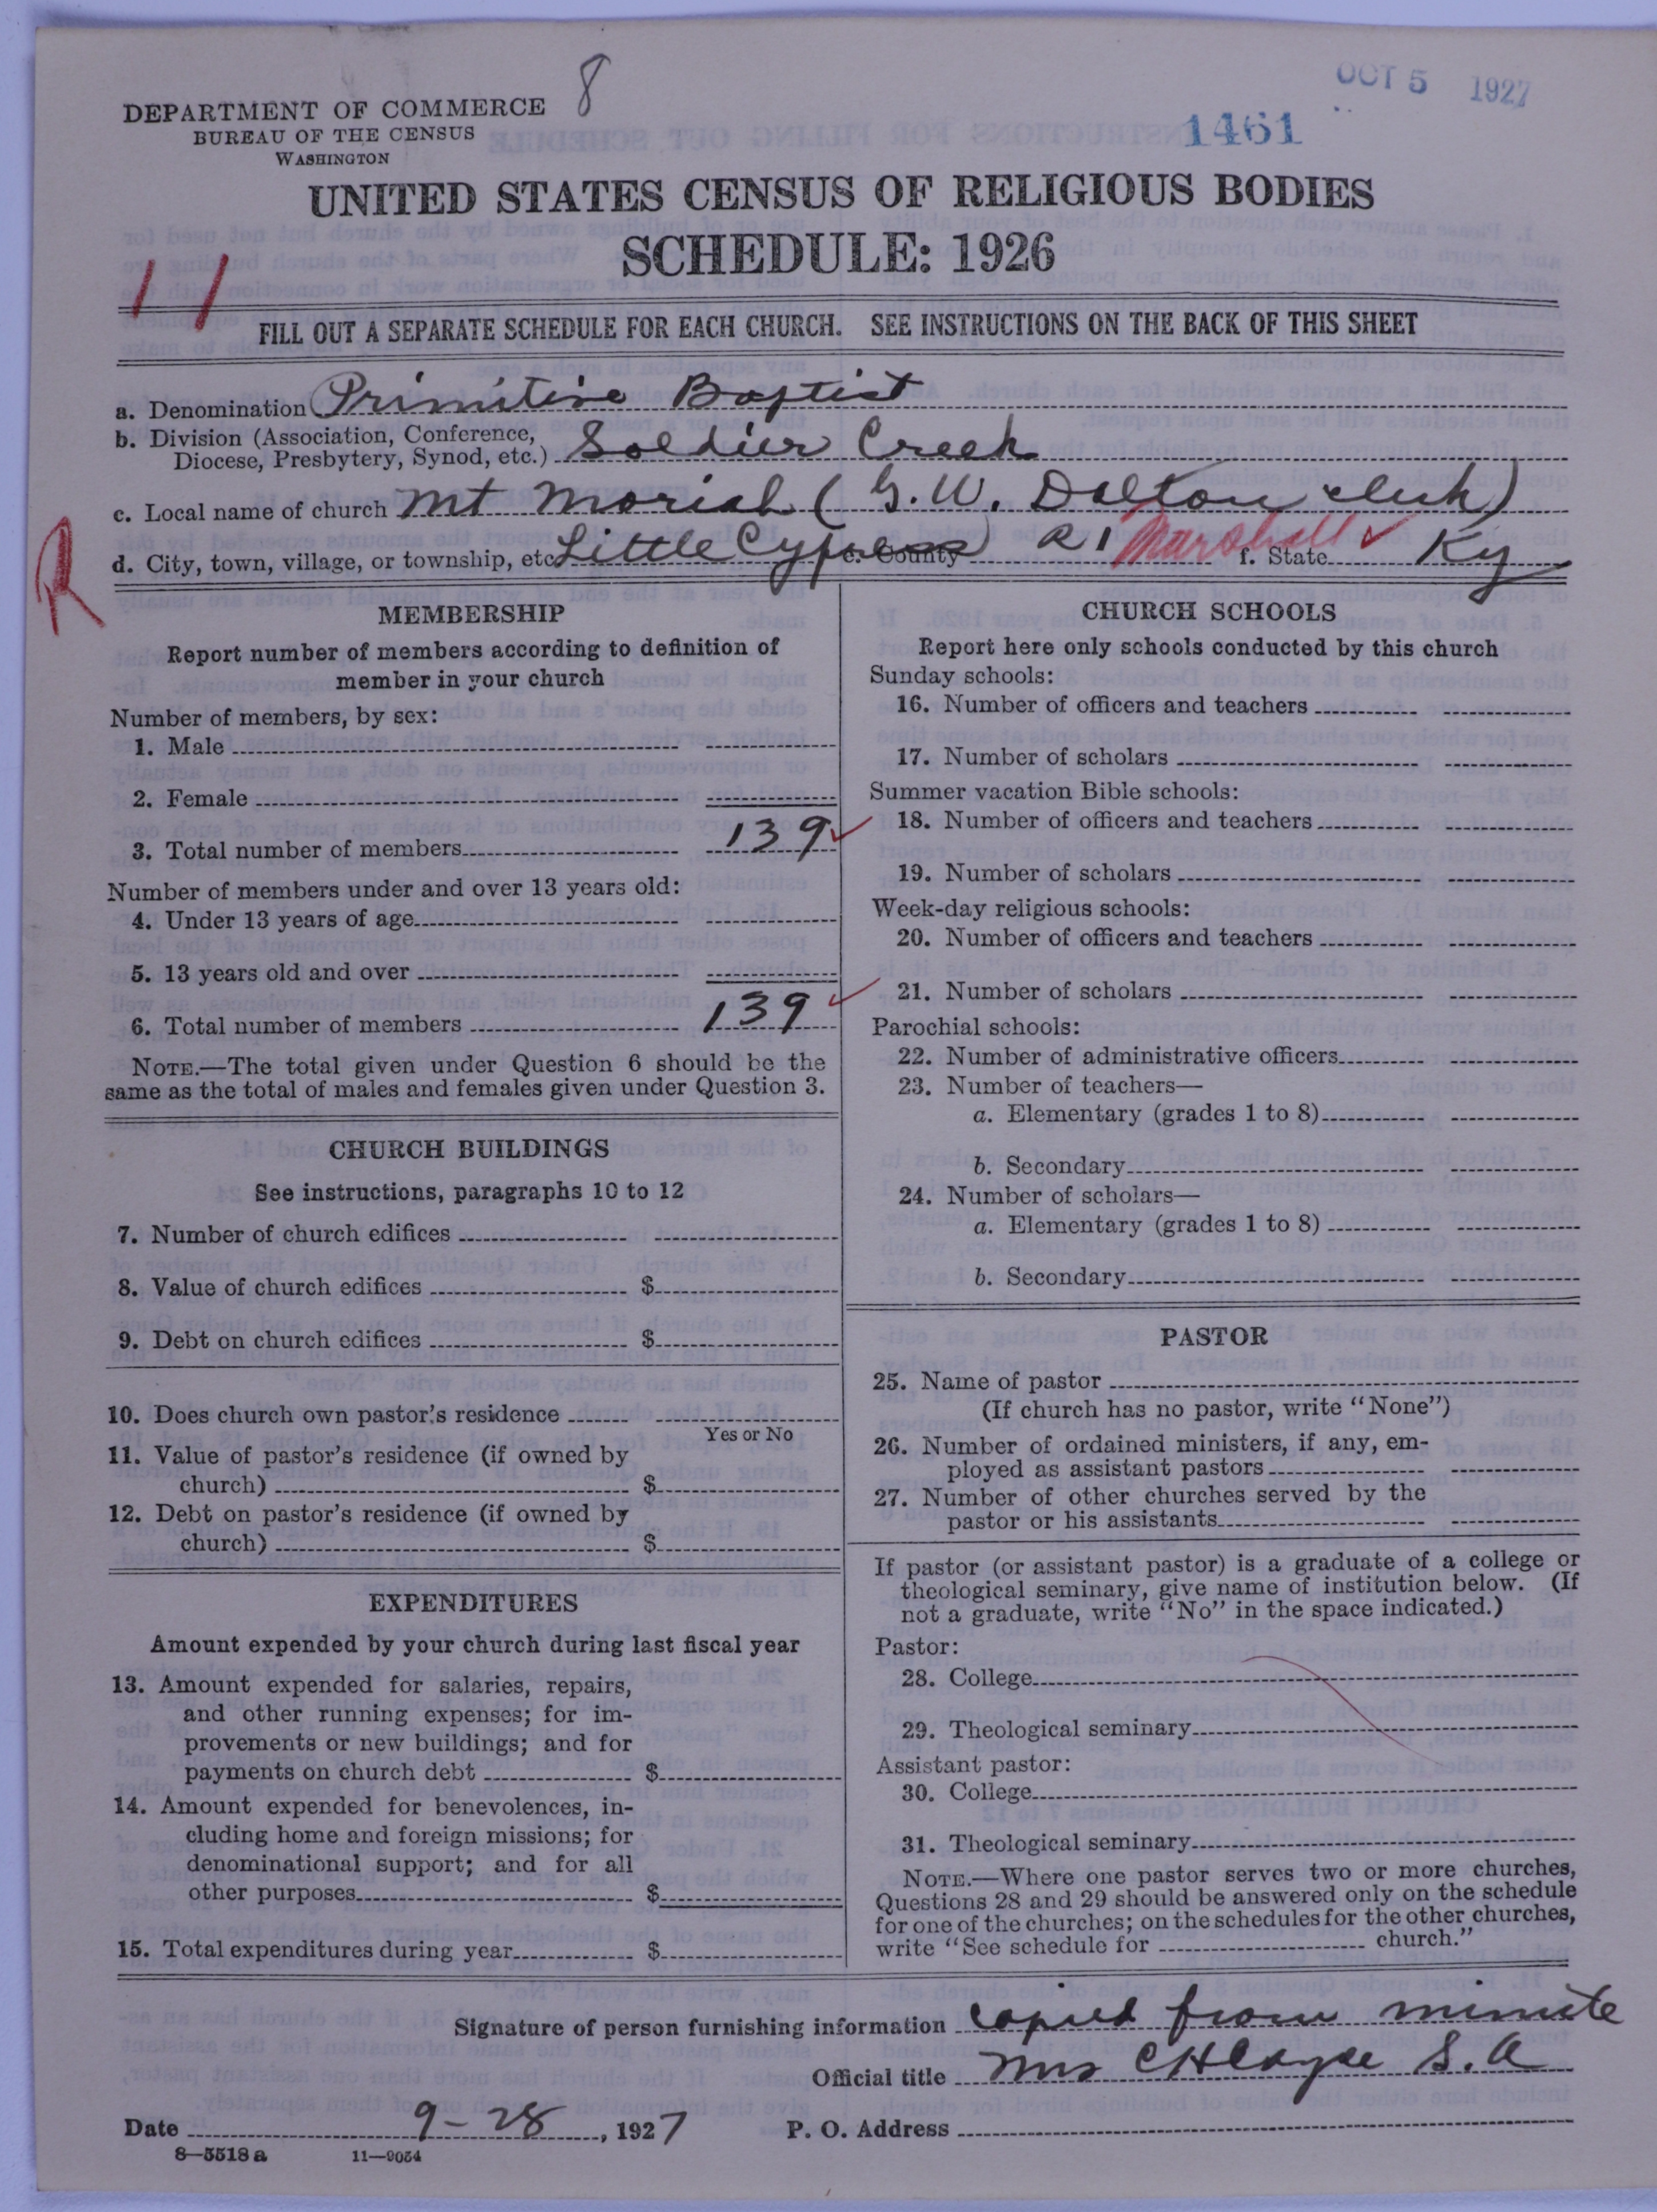 8
OCT 5 1927
1461
DEPARTMENT OF COMMERCE
BUREAU OF THE CENSUS
WASHINGTON
UNITED STATES CENSUS OF RELIGIOUS BODIES
SCHEDULE: 1926
11
FILL OUT A SEPARATE SCHEDULE FOR EACH CHURCH. SEE INSTRUCTIONS ON THE BACK OF THIS SHEET
a. Denomination Primitive Baptist
b. Division (Association, Conference,
Diocese, Presbytery, Synod, etc.) Soldier Creek
c. Local name of church Mt Moriah (G. W. Dalton clerk)
d. City, town, village, or township, etc. Little Cypress R1 e. County Marshall f. State Ky
R
MEMBERSHIP
Report number of members according to definition of
member in your church
Number of members, by sex:
1. Male
2. Female
3. Total number of members 139
Number of members under and over 13 years old:
4. Under 13 years of age
5. 13 years old and over
6. Total number of members 139
NOTE.—The total given under Question 6 should be the
same as the total of males and females given under Question 3.
CHURCH BUILDINGS
See instructions, paragraphs 10 to 12
7. Number of church edifices
8. Value of church edifices $
9. Debt on church edifices $
10. Does church own pastor's residence
Yes or No
11. Value of pastor's residence (if owned by
church) $
12. Debt on pastor's residence (if owned by
church) $
EXPENDITURES
Amount expended by your church during last fiscal year
13. Amount expended for salaries, repairs,
and other running expenses; for im-
provements or new buildings; and for
payments on church debt $
14. Amount expended for benevolences, in-
cluding home and foreign missions; for
denominational support; and for all
other purposes $
15. Total expenditures during year $
CHURCH SCHOOLS
Report here only schools conducted by this church
Sunday schools:
16. Number of officers and teachers
17. Number of scholars
Summer vacation Bible schools:
18. Number of officers and teachers
19. Number of scholars
Week-day religious schools:
20. Number of officers and teachers
21. Number of scholars
Parochial schools:
22. Number of administrative officers
23. Number of teachers—
a. Elementary (grades 1 to 8)
b. Secondary
24. Number of scholars—
a. Elementary (grades 1 to 8)
b. Secondary
PASTOR
25. Name of pastor
(If church has no pastor, write "None")
26. Number of ordained ministers, if any, em-
ployed as assistant pastors
27. Number of other churches served by the
pastor or his assistants
If pastor (or assistant pastor) is a graduate of a college or
theological seminary, give name of institution below. (If
not a graduate, write "No" in the space indicated.)
Pastor:
28. College
29. Theological seminary
Assistant pastor:
30. College
31. Theological seminary
NOTE.—Where one pastor serves two or more churches,
Questions 28 and 29 should be answered only on the schedule
for one of the churches; on the schedules for the other churches,
write "See schedule for church."
Signature of person furnishing information copied from minute
Official title Mrs C H Cayce S. A
Date 9-28, 1927 P. O. Address
8—5518 a 11—9054